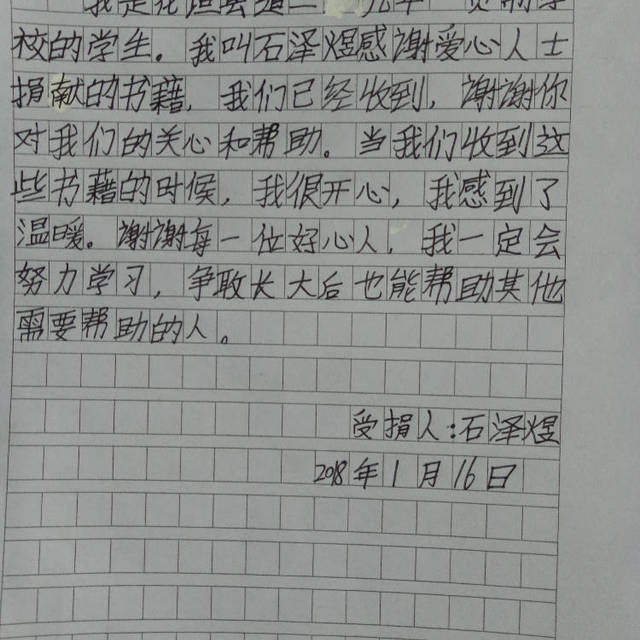 我是花垣县
校的学生。我叫石泽煜感谢爱心人士
捐献的书籍，我们已经收到，谢谢你
对我们的关心和帮助。当我们收到这
些书藉的时候，我很开心，我感到了
温暖。谢谢每一位好心人，我一定会
努力学习，争取长大后也能帮助其他
需要帮助的人。
受捐人：石泽煜
2018年1月16日